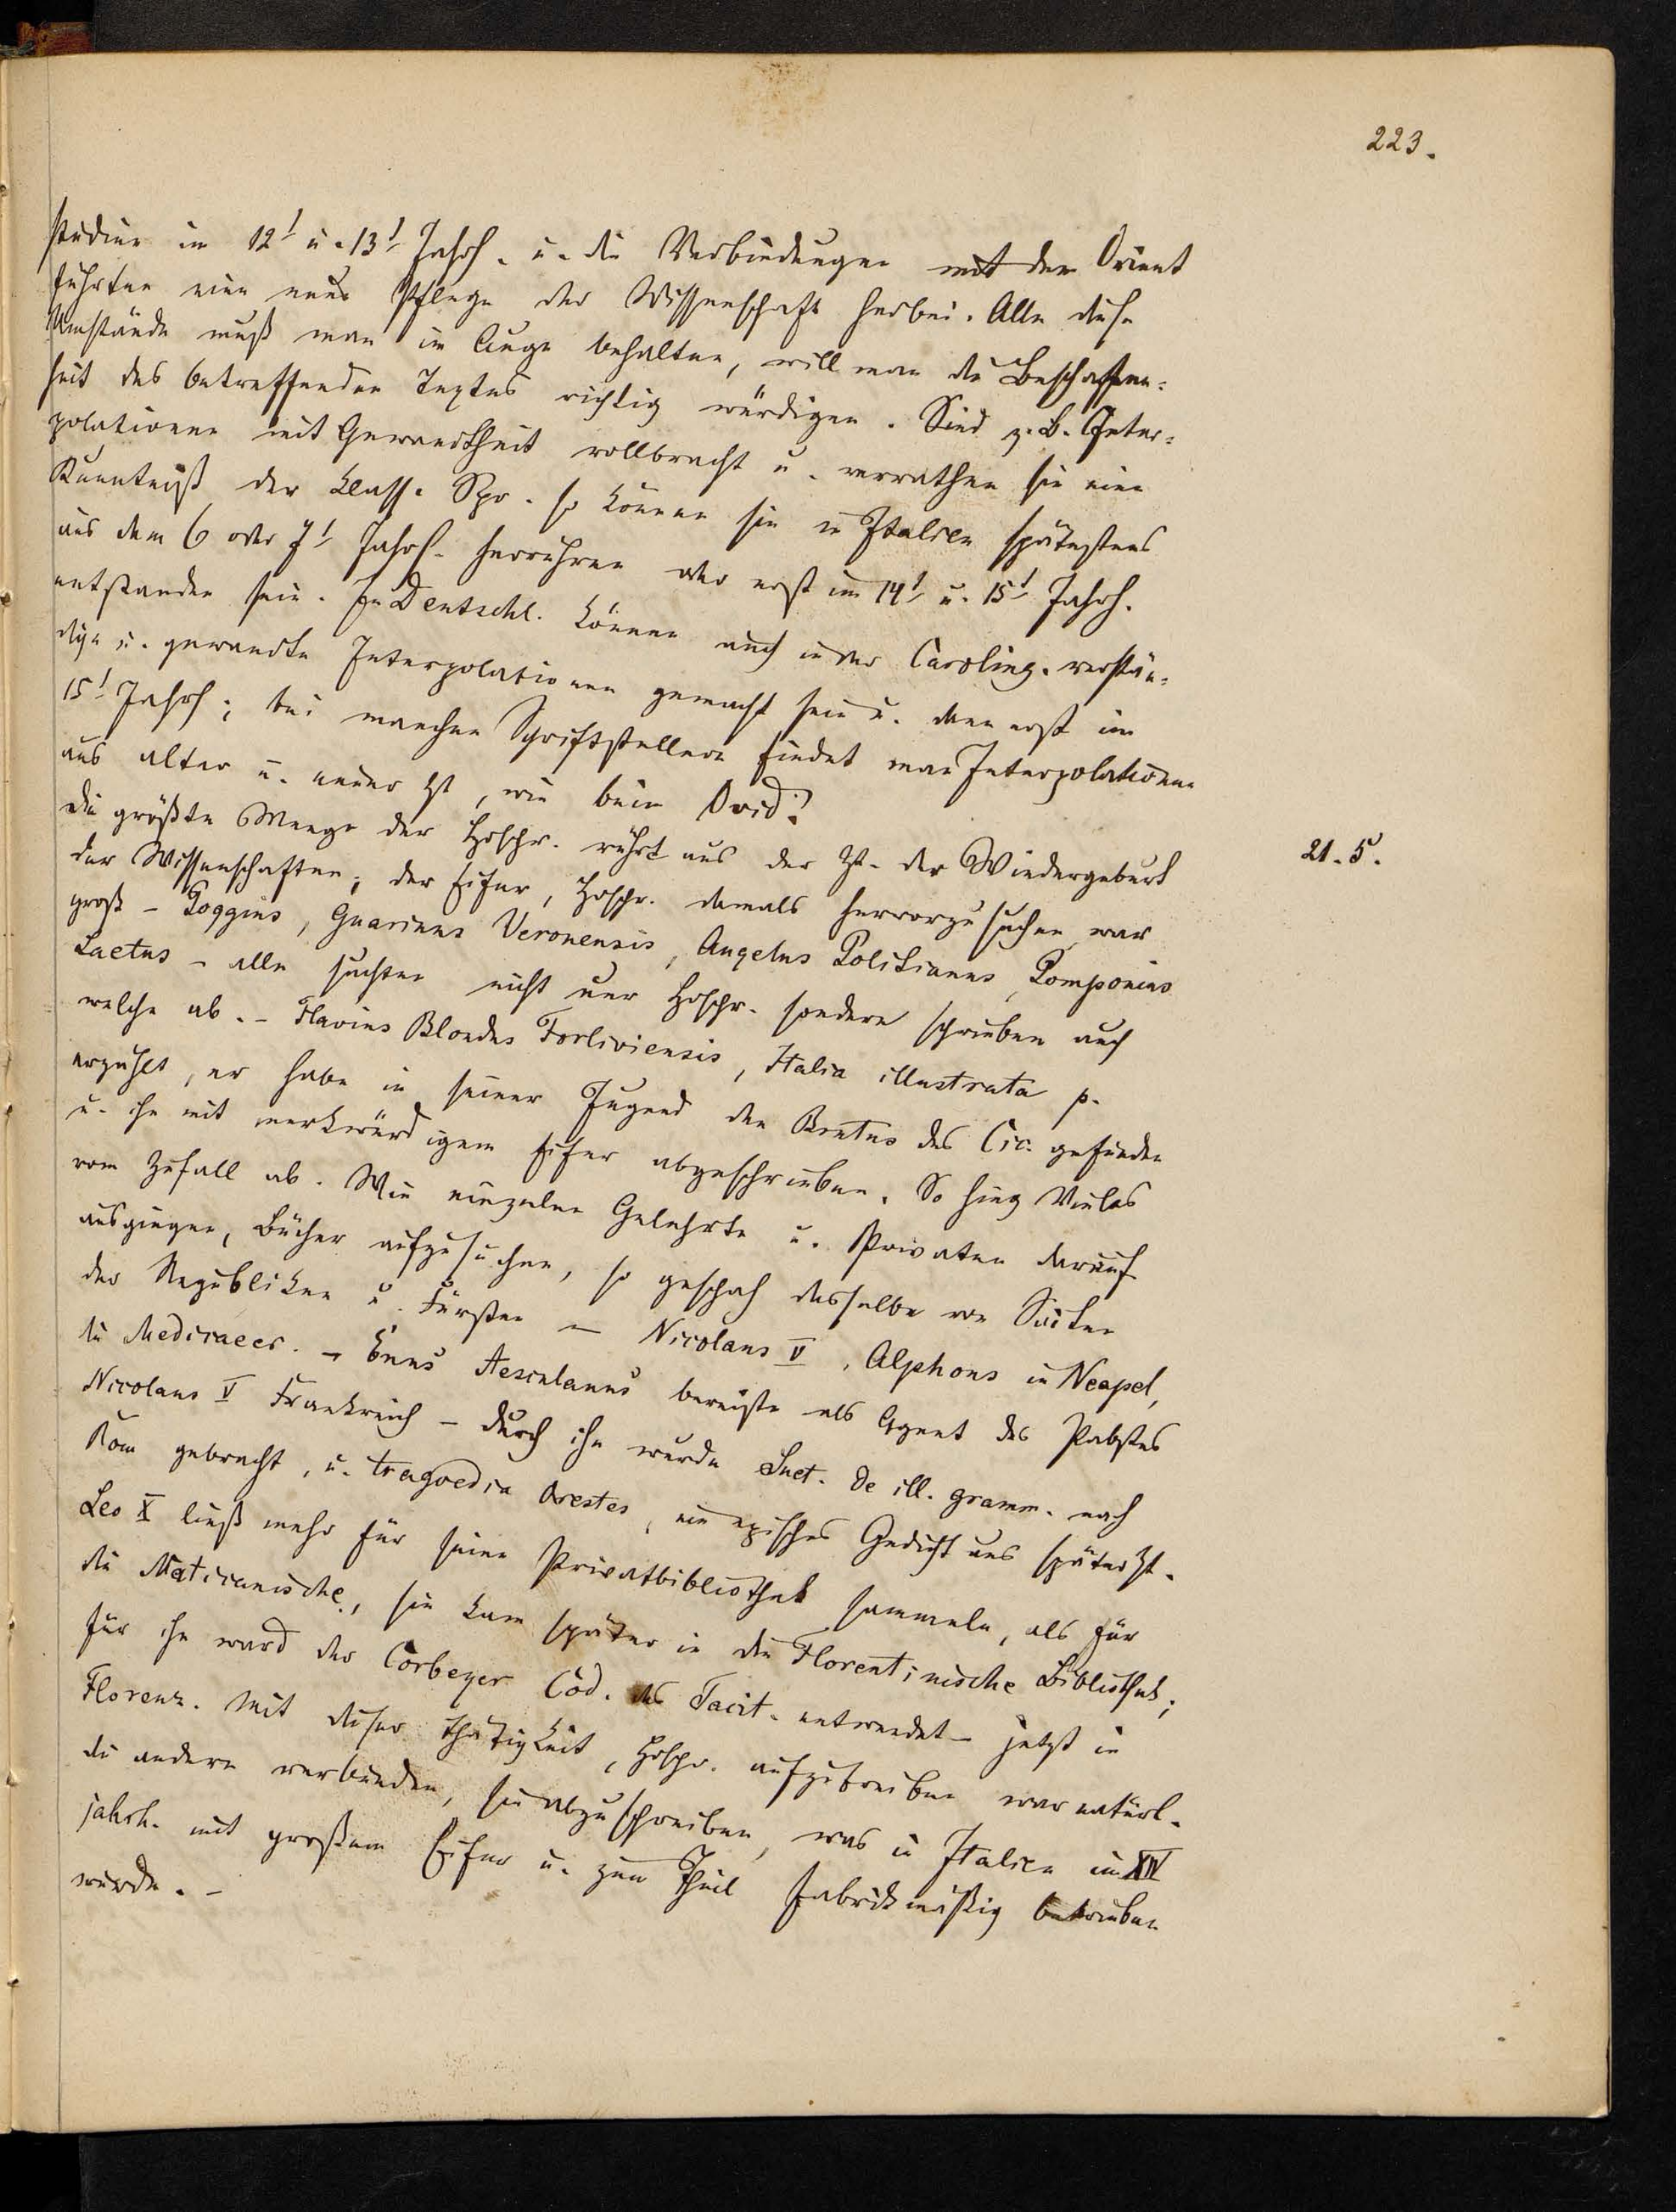 223.
studien im 12t u. 13t Jahrh. u. die Verbindungen mit dem Orient
führten eine neue Pflege der Wissenschaft herbei. Alle diese
Umstände muß man im Auge behalten, will man die Beschaffen=
heit des betreffenden Textes richtig würdigen. Sind z. B. Inter=
polationen mit Gewandtheit vollbracht u. verrathen sie eine
Kenntniß der klass. Spr. so können sie in Italien spätestens
aus dem 6 oder 7t Jahrh. herrühren oder erst im 14t u. 15t Jahrh.
entstanden sein. In Deutschl. können auch in der Caroling. verstän=
dige u. gewandte Interpolationen gemacht sein u. dann erst im
15t Jahrh; bei manchen Schriftstellern findet man Interpolationen
aus alter u. neuer Zt, wie beim Ovid.
Die größte Menge der Hdschr. rührt aus der Zt. der Wiedergeburt
21. 5.
der Wissenschaften; der Eifer, Hdschr. damals hervorzusuchen war
groß – Poggius, Guarinus Veronensis, Angelus Politianus, Pomponius
Laetus – alle suchten nicht nur Hdschr. sondern schrieben auch
welche ab. – Flavius Blondus Forliviensis, Italia illustrata p.
erzählt, er habe in seiner Jugend den Brutus des Cic. gefunden
u. ihn mit merkwürdigem Eifer abgeschrieben. So hing Vieles
vom Zufall ab. Wie einzelne Gelehrte u. Privaten darauf
ausgingen, Bücher aufzusuchen, so geschah dasselbe von Seiten
der Republiken u. Fürsten – Nicolaus V, Alphons in Neapel,
die Mediraeer. – Enus Aesculanus bereiste als Agent des Pabstes
Nicolaus V Frankreich – durch ihn wurde Suet. de ill. gramm. nach
Rom gebracht, u. tragoedia Orestes, ein episches Gedicht aus später Zt.
Leo X ließ mehr für seine Privatbibliothek sammeln, als für
die Vaticanische, sie kam später in die Florentinische Bibliothek;
für ihn ward der Corbeyer Cod. des Tacit. entwendet – jetzt in
Florenz. Mit dieser Thätigkeit, Hdschr. aufzutreiben war natürl.
die andere verbunden, sie abzuschreiben, was in Italien im XIV
jahrh. mit großem Eifer u. zum Theil fabrikmäßig betrieben
wurde. –